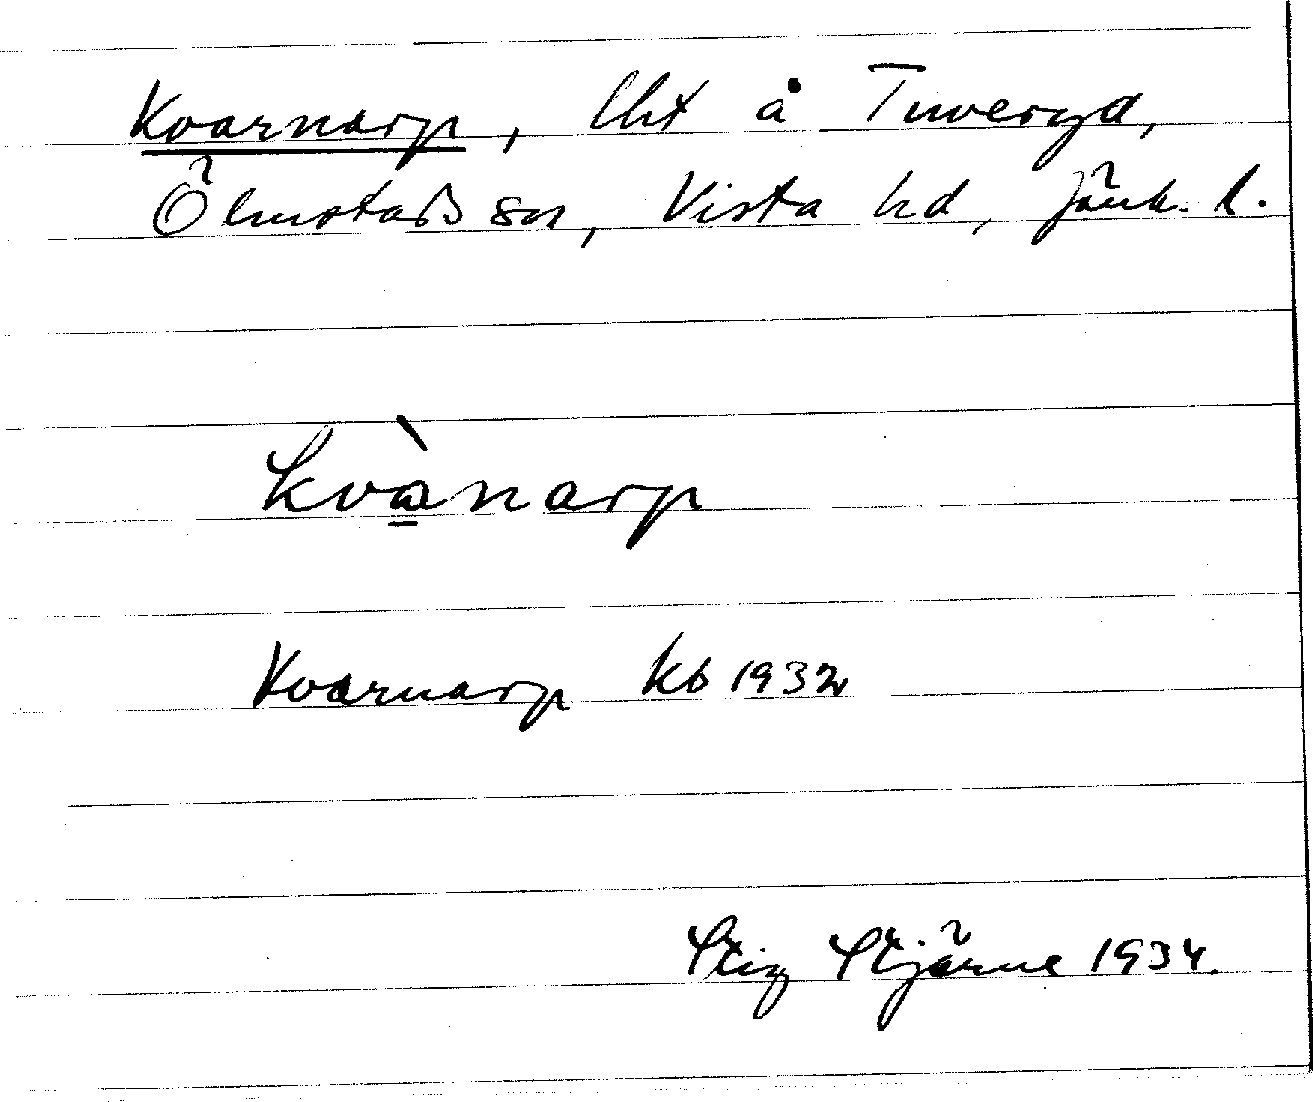 Kvarnarp, lht å Tuveryd,
Ölmstads sn, Vista hd, Jönk. l.
kvànarp
Kvarnarp kb 1932
Stig Stjärne 1934.